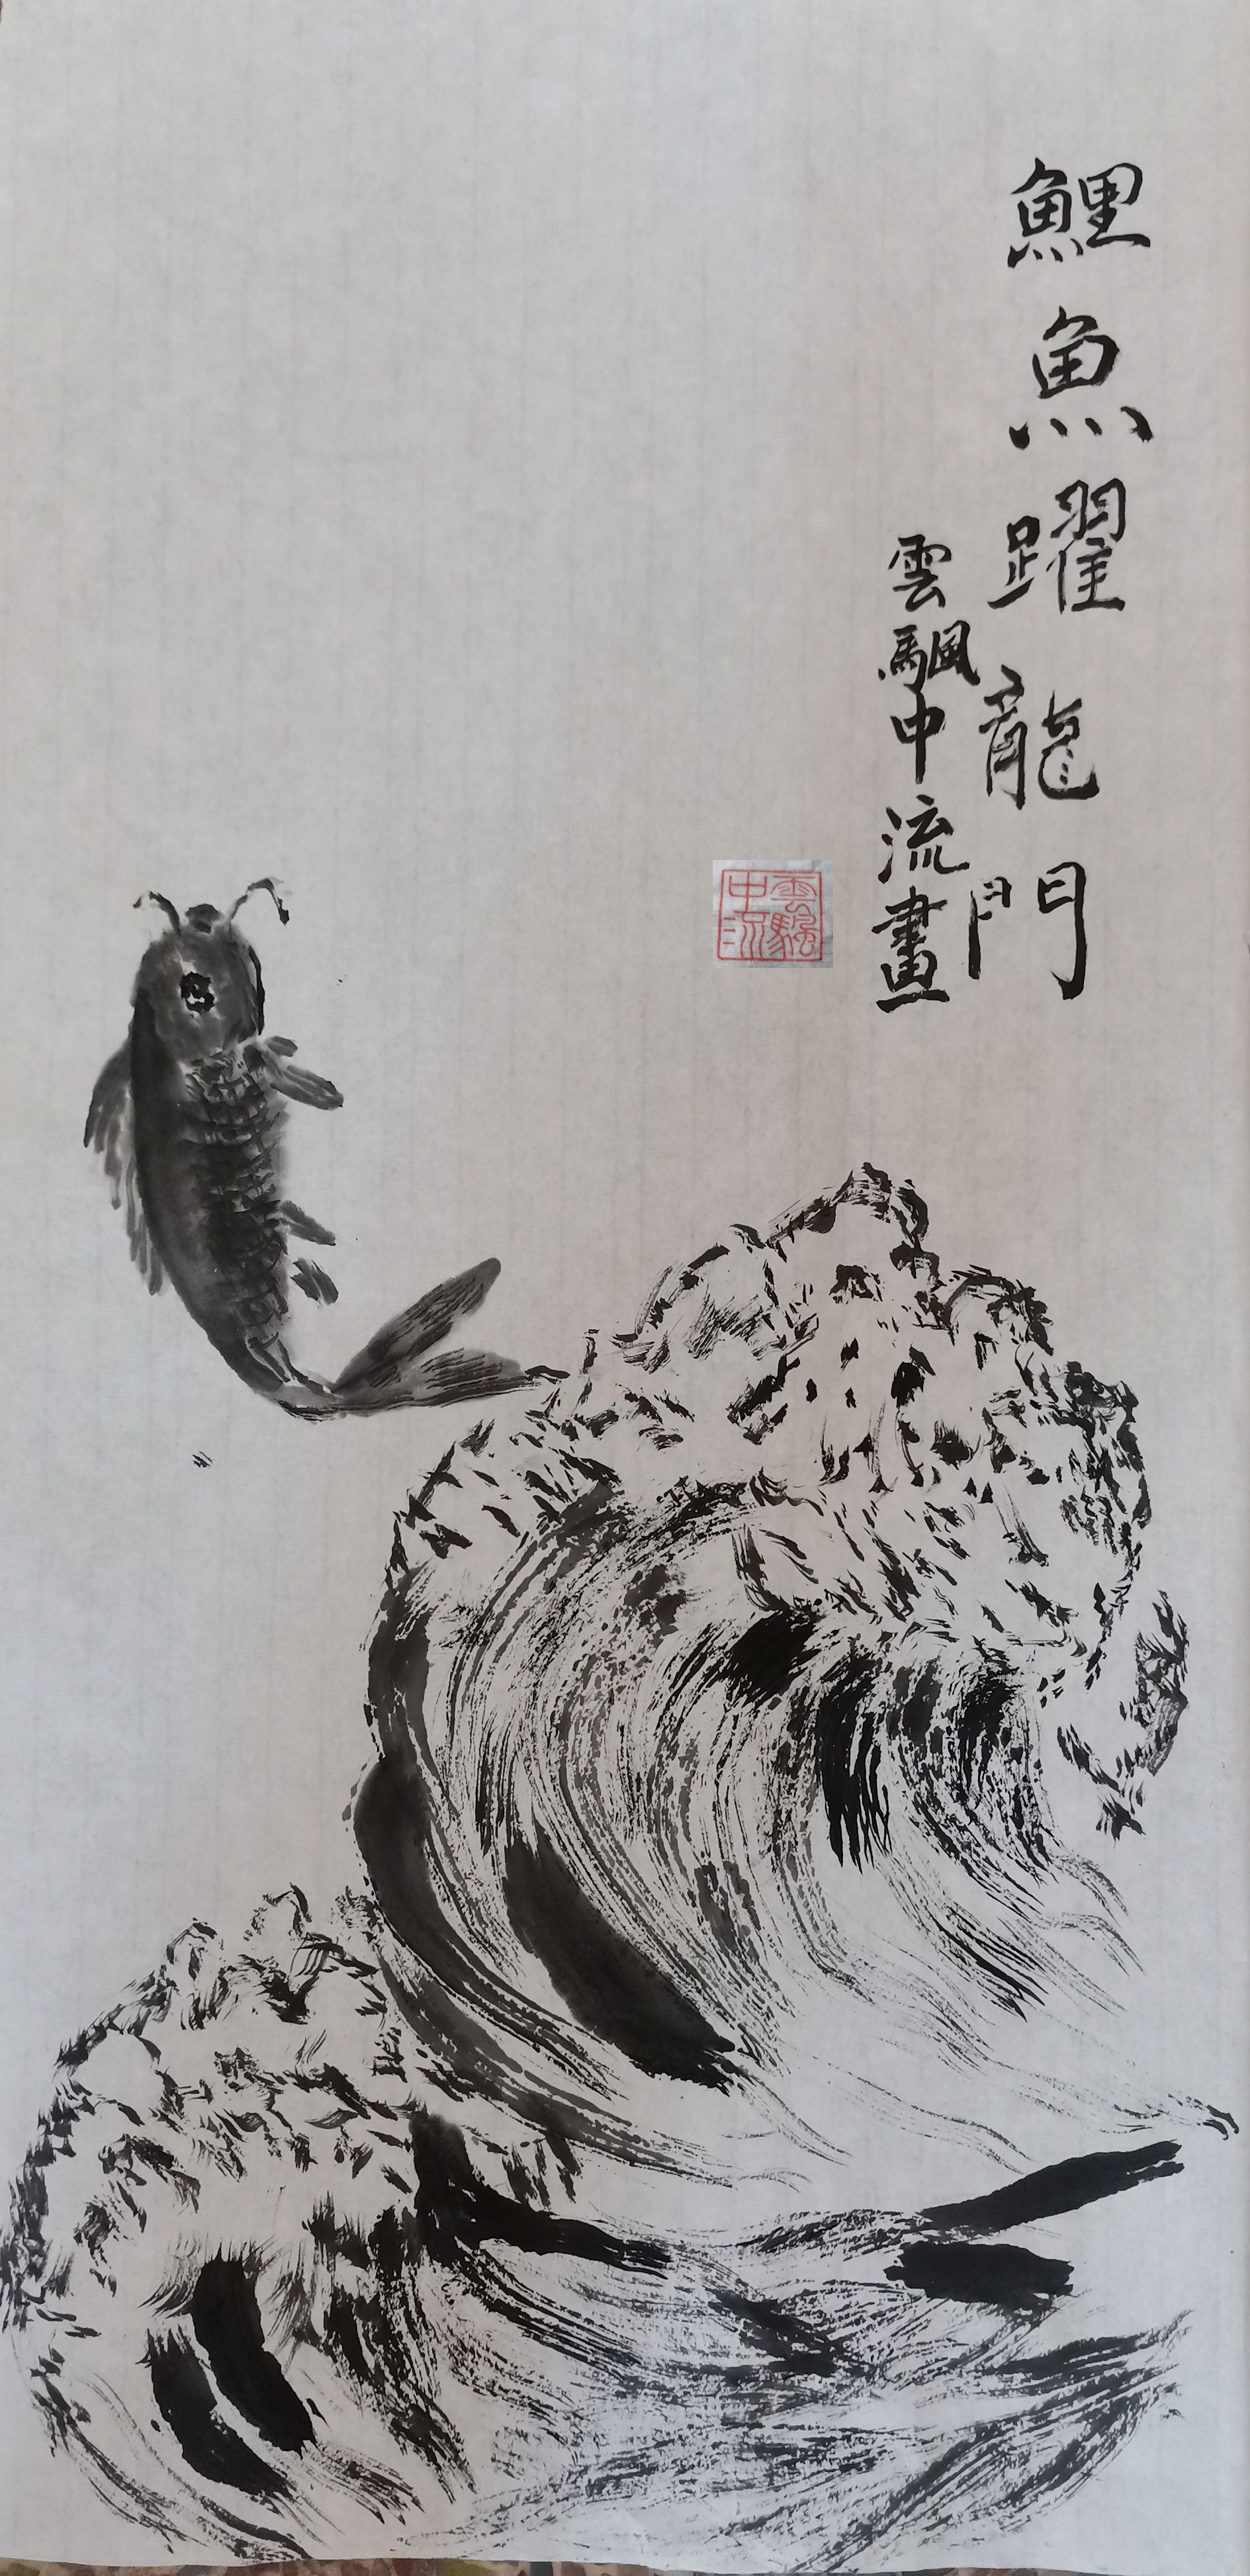 鯉魚躍龍門
雲颿中流畫
雲颿中流